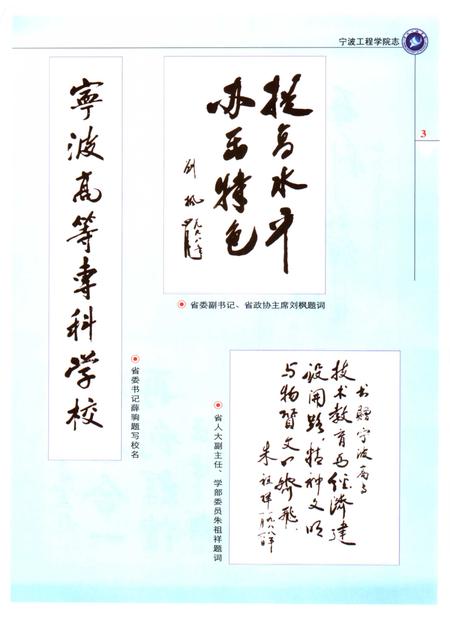 宁波工程学院志
3
寧波高等专科学校
省委书记薛驹题写校名
提高水平
办出特色
刘枫
一九九八年
省委副书记、省政协主席刘枫题词
书赠宁波高专
技术教育为经济建
设开路，精神文明
与物质文明齐飞．
朱祖祥
省人大副主任、学部委员朱祖祥题词